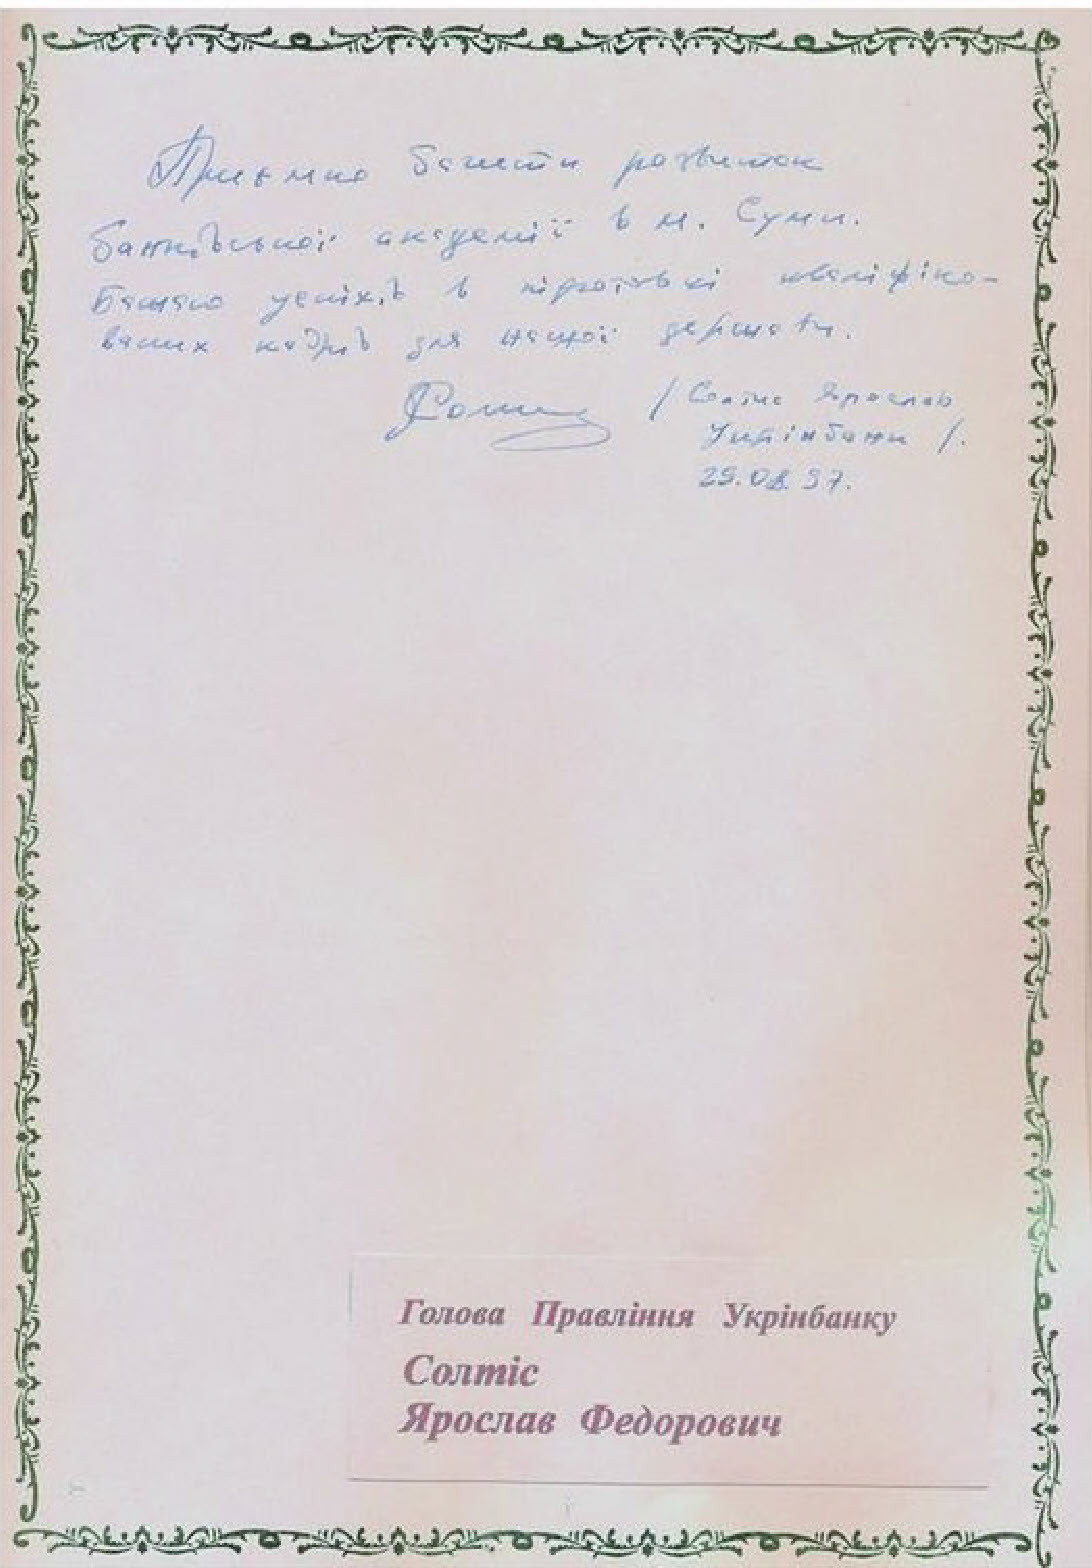 Приємно бачити розвиток
банківської академії в м. Суми.
Бажаю успіхів в підготовці кваліфіко-
ваних кадрів для нашої держави.
/ Солтіс Ярослав
Укрінбанк /.
Голова Правління Укрінбанку
Солтіс
Ярослав Федорович